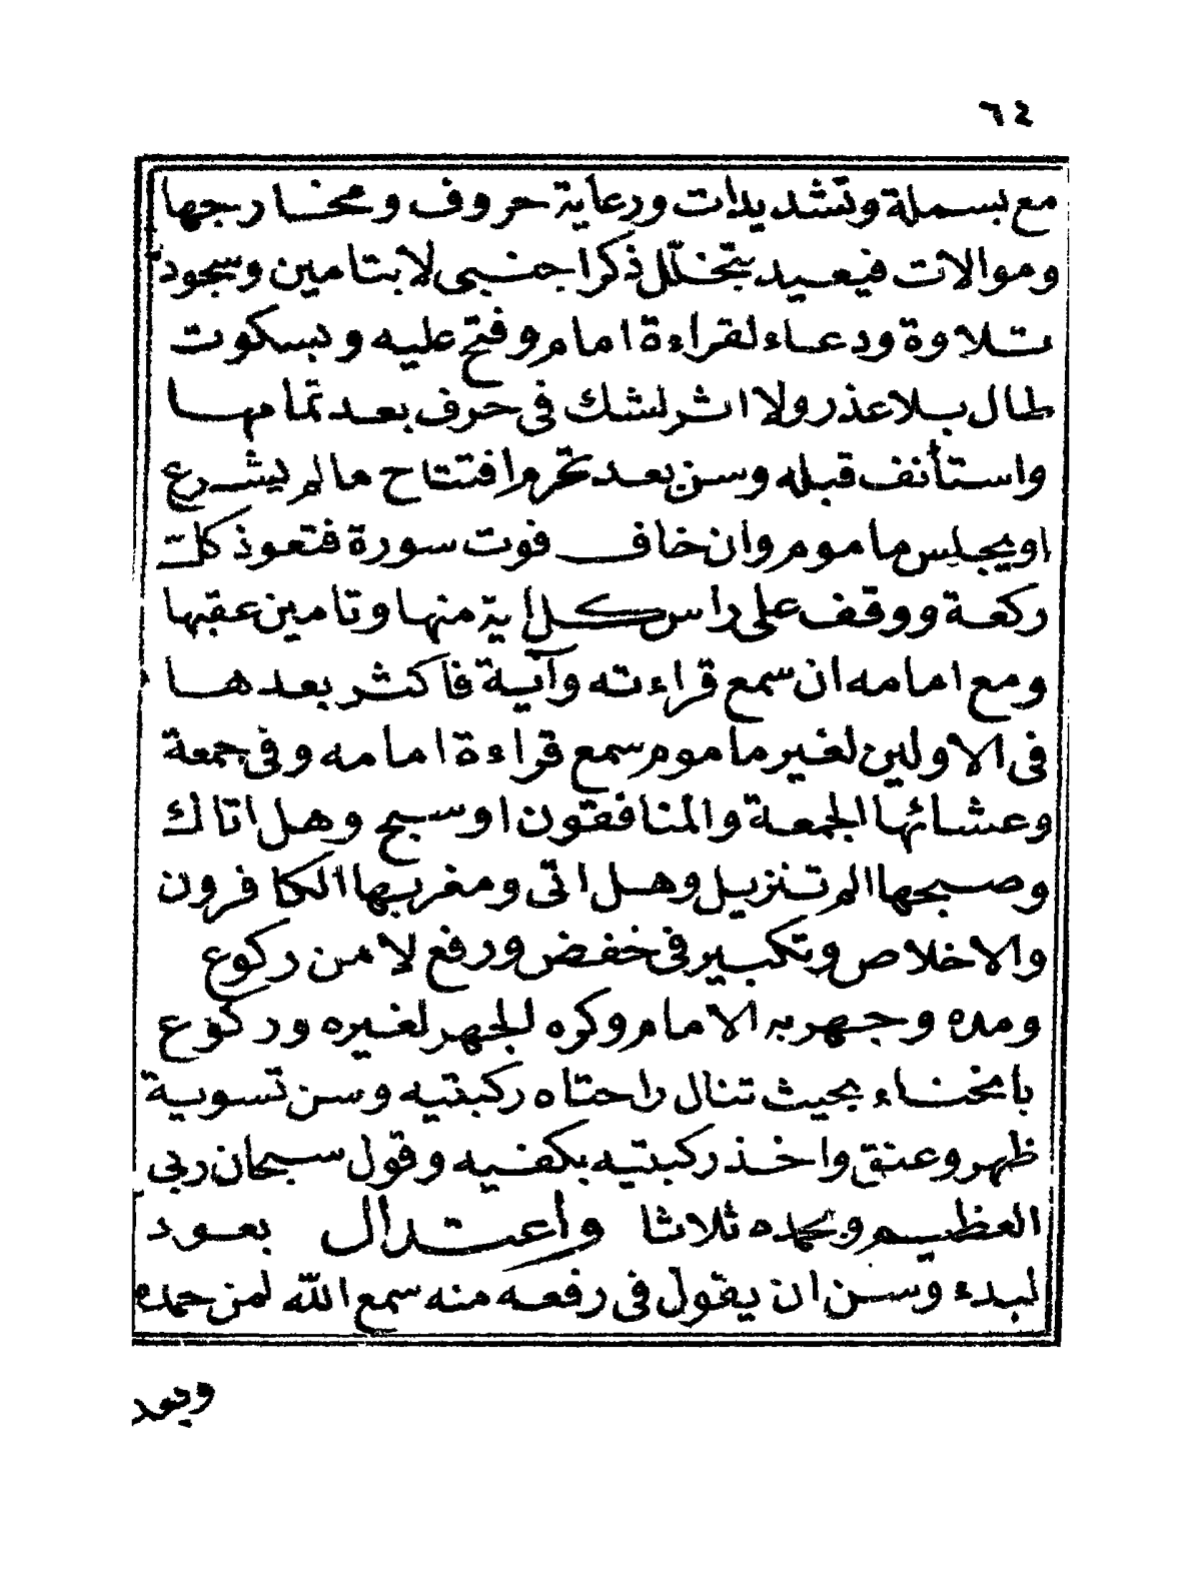 ٦٤
مع بسملة وتشديدات ورعاية حروف ومخارجها
وموالات فيعيد بتخلّل ذكر اجنبي لا بتامين وسجود
تلاوة ودعاء لقراءة امام وفتح عليه وبسكوت
طال بلا عذر ولا اثر لشك فى حرف بعد تمامها
واستأنف قبله وسن بعد تحرم افتتاح ما لم يشرع
او يجلس ماموم وان خاف فوت سورة فتعوذ كلّ
ركعة ووقف على راس كل اية منها وتامين عقبها
ومع امامه ان سمع قراءته وآية فاكثر بعدها
فى الاولين لغير ماموم سمع قراءة امامه وفى جمعة
وعشائها الجمعة والمنافقون او سبح وهل اتاك
وصبحها الم تنزيل وهل اتى ومغربها الكافرون
والاخلاص وتكبير فى خفض ورفع لا من ركوع
ومده وجهر به الامام وكره الجهر لغيره وركوع
بانحناء بحيث تنال راحتاه ركبتيه وسن تسوية
ظهر وعنق واخذ ركبتيه بكفيه وقول سبحان ربى
العظيم وبحمده ثلاثا واعتدال بعود
لبدء وسن ان يقول فى رفعه منه سمع الله لمن حمده
وبعد